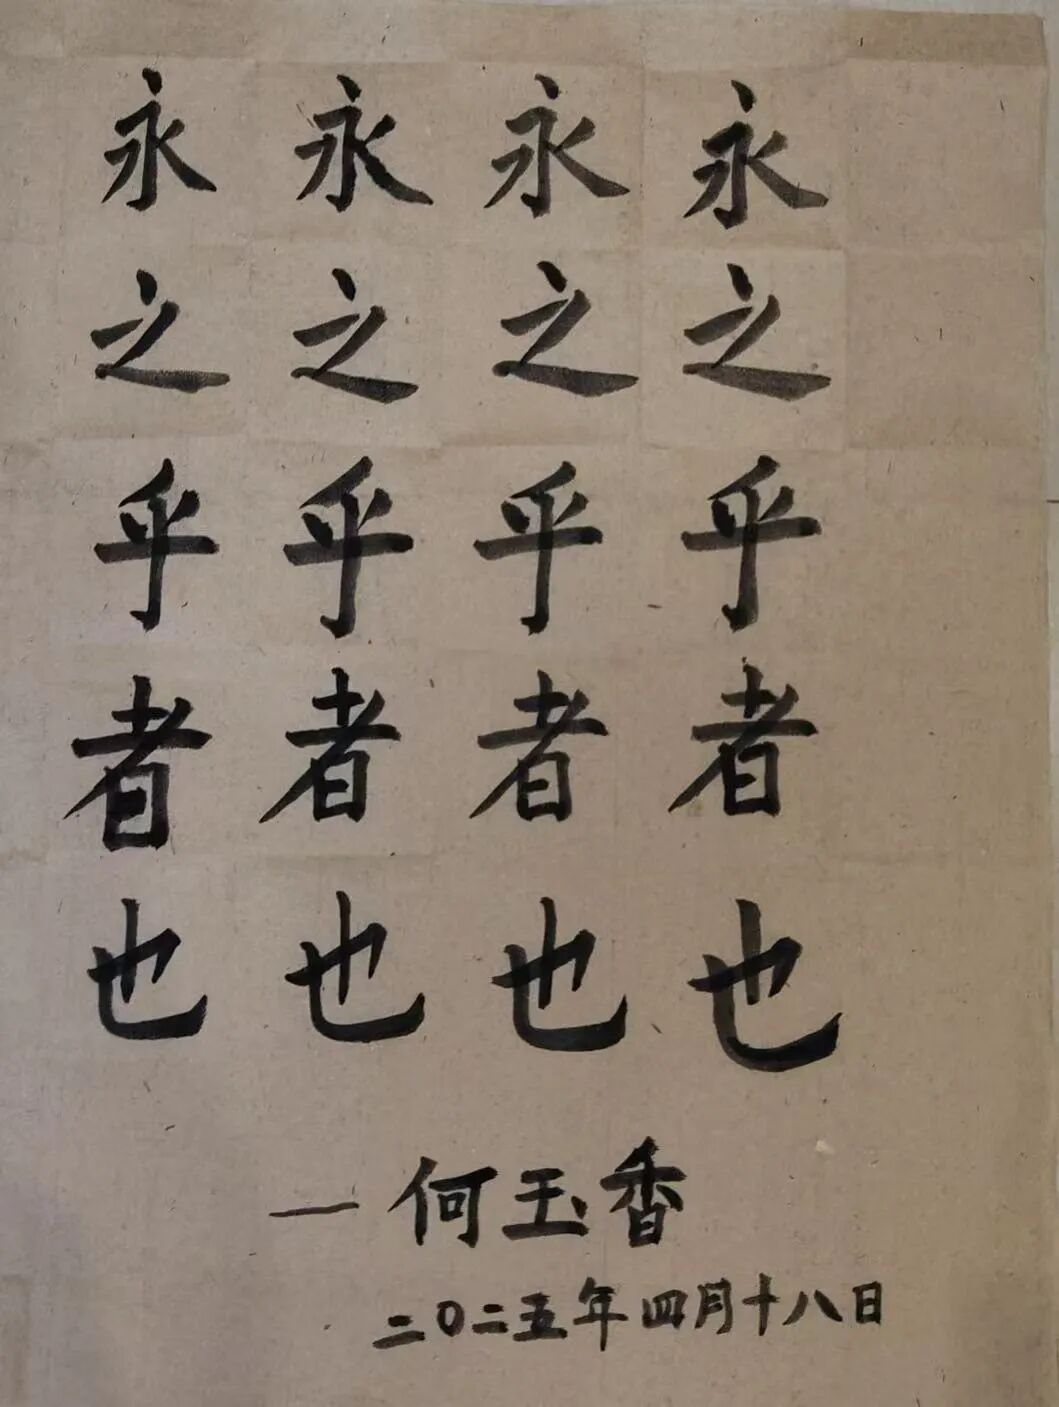 永永永永
之之之之
乎乎乎乎
者者者者
也也也也
一何玉香
二〇二五年四月十八日